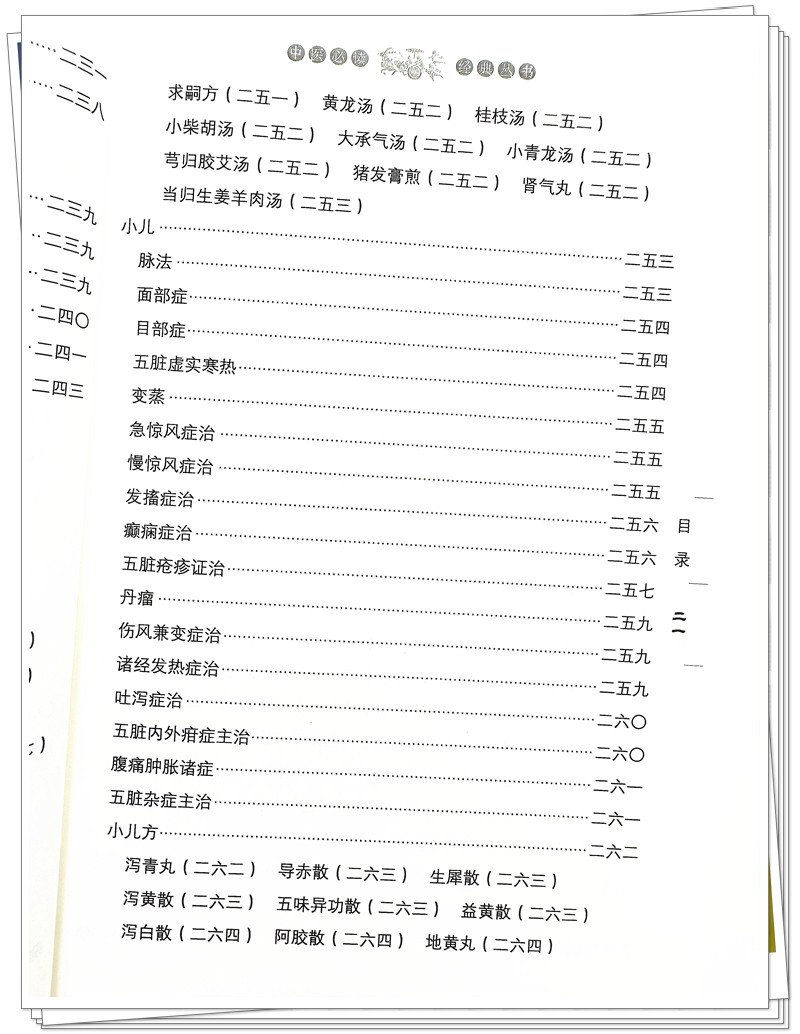 中医必读 经典丛书
求嗣方（二五一） 黄龙汤（二五二） 桂枝汤（二五二）
小柴胡汤（二五二） 大承气汤（二五二） 小青龙汤（二五二）
芎归胶艾汤（二五二） 猪发膏煎（二五二） 肾气丸（二五二）
当归生姜羊肉汤（二五三）
小儿……二五三
脉法……二五三
面部症……二五四
目部症……二五四
五脏虚实寒热……二五四
变蒸……二五五
急惊风症治……二五五
慢惊风症治……二五五
发搐症治……二五六
癫痫症治……二五六
五脏疮疹证治……二五七
丹瘤……二五九
伤风兼变症治……二五九
诸经发热症治……二五九
吐泻症治……二六〇
五脏内外疳症主治……二六〇
腹痛肿胀诸症……二六一
五脏杂症主治……二六一
小儿方……二六二
泻青丸（二六二） 导赤散（二六三） 生犀散（二六三）
泻黄散（二六三） 五味异功散（二六三） 益黄散（二六三）
泻白散（二六四） 阿胶散（二六四） 地黄丸（二六四）
目录
二一
二三八
二三九
二三九
二三九
二四〇
二四一
二四三